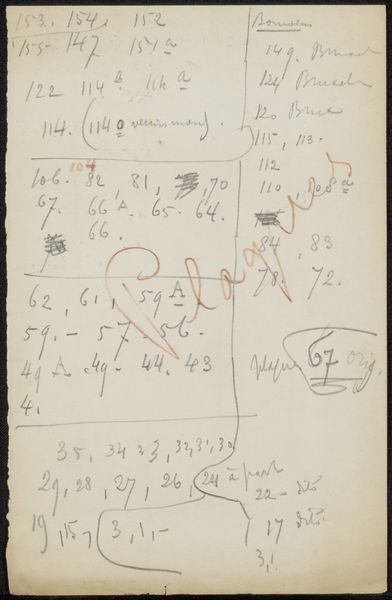 153. 154. 152
155- 147 151a
122 114b 114a
114. (1140).
104
106. 82, 81, 70
67. 66A. 65. 64.
66.
Plaques
62, 61, 59A
59.- 57- 56-
49A 49- 44. 43
4.
35, 34 33, 32, 31, 30
29, 28, 27, 26, 24 à part
19, 15, 3, 1,-
149.
124
120
115, 113.
112
110, 108a
84, 83
78. 72.
plaque 67 orig.
22- dito
17 dito
3, 1.